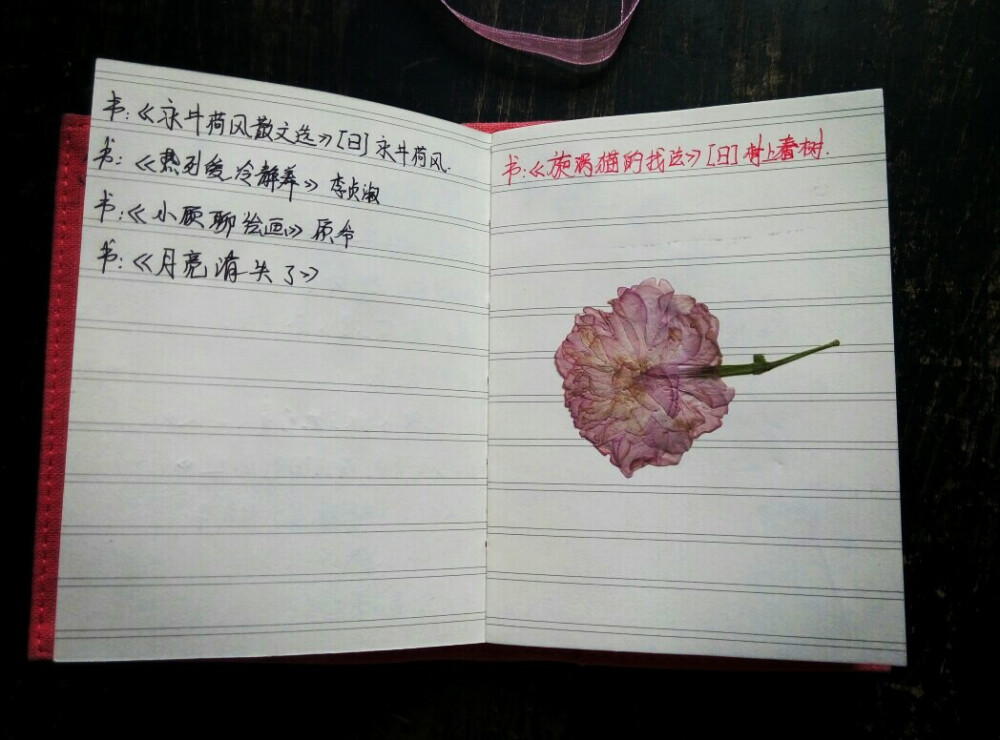 书:《永井荷风散文选》[日]永井荷风.
书:《热烈爱冷静弃》李贞淑
书:《小顾聊绘画》顾爷
书:《月亮消失了》
书:《旋涡猫的找法》[日]村上春树.